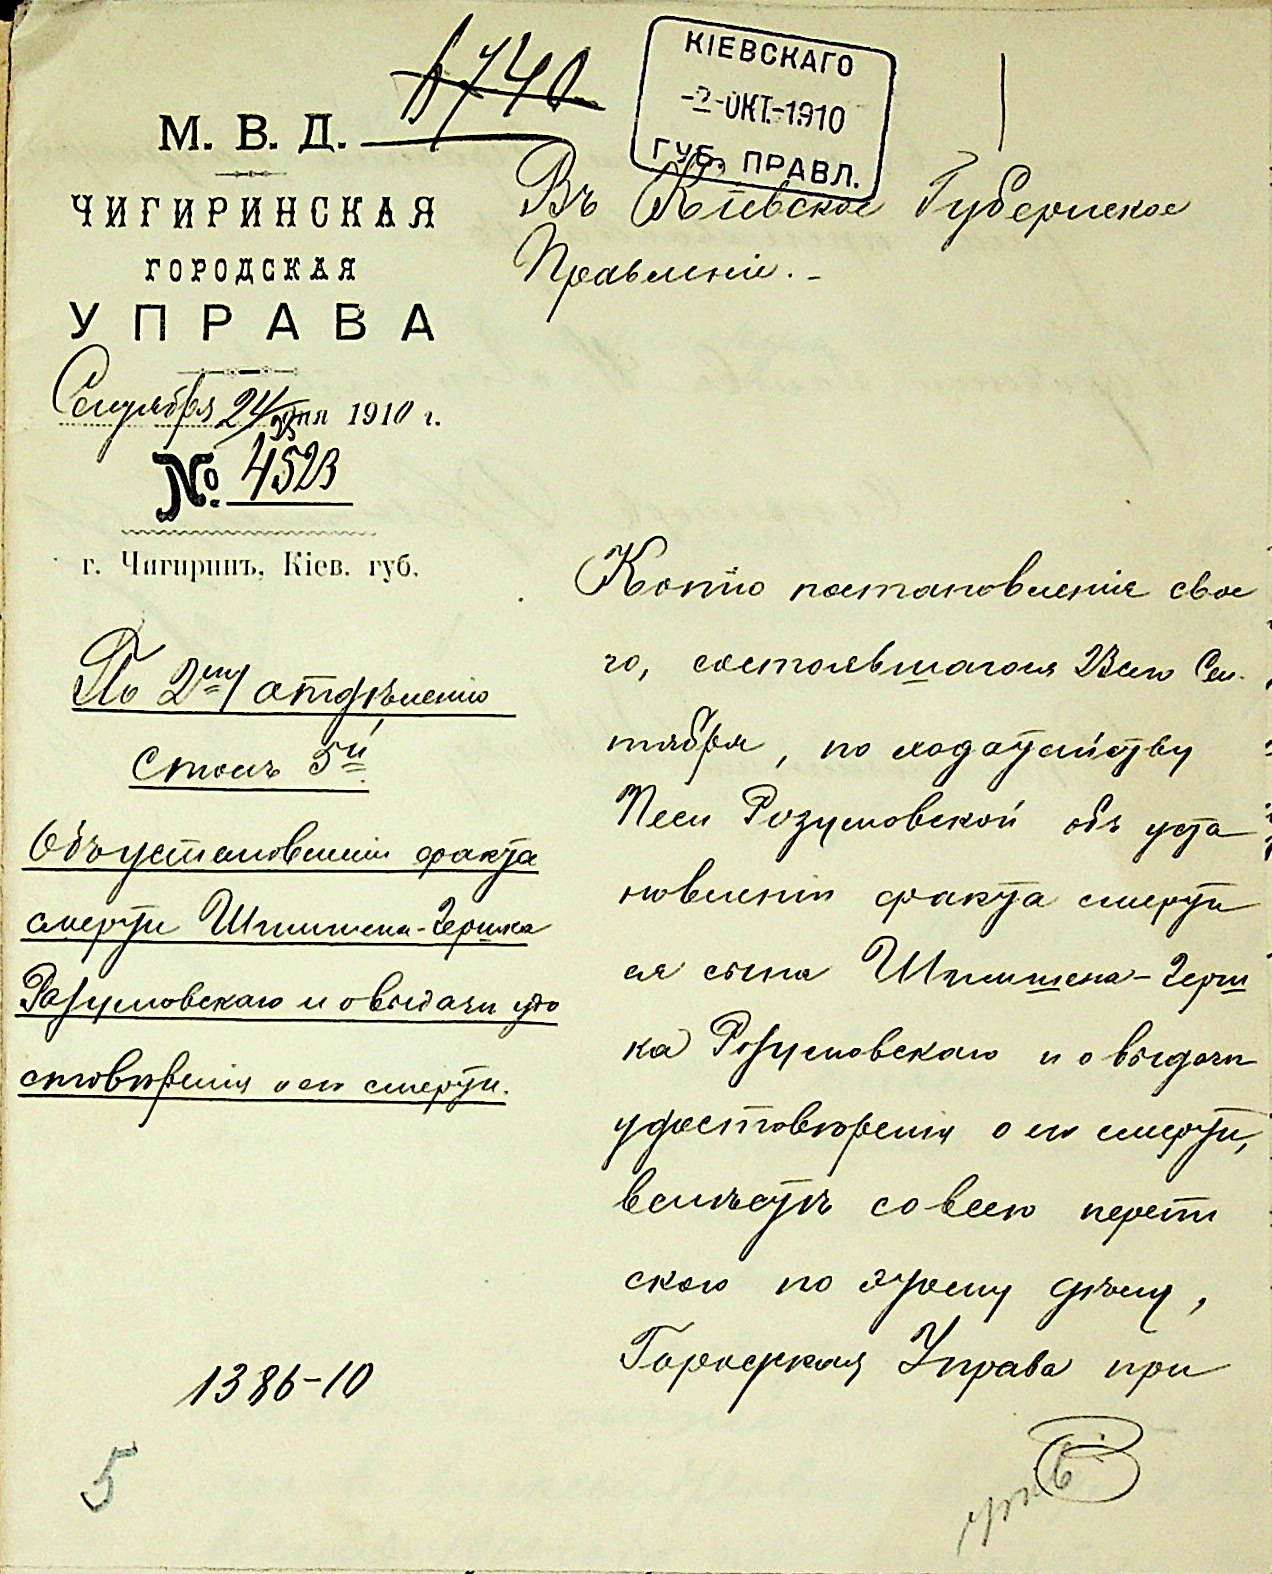 6740
КІЕВСКАГО
-2-ОКТ.-1910
ГУБ. ПРАВЛ.
М. В. Д.
ЧИГИРИНСКАЯ
ГОРОДСКАЯ
УПРАВА
Сентября 24/ дня 1910 г.
№ 4523
г. Чигиринъ, Кіев. губ.
Въ Кіевское Губернское
Правленіе.-
По 2му отдѣленію
столъ 5й
Объ установленіи факта
смерти Шпиншена-Гершка
Разумовскаго и о выдачи удо
стовѣренія о его смерти.
1386-10
5
Копію постановленія свое
го, состоявшагося 23го Сен-
тября, по ходатайству
Песи Розумовской объ уста
новленіи факта смерти
ея сына Шпиншена-Герш
ка Розумовскаго и о выдачи
удостовѣренія о его смерти,
вмѣстѣ со всею перепи
скою по этому дѣлу,
Городская Управа при